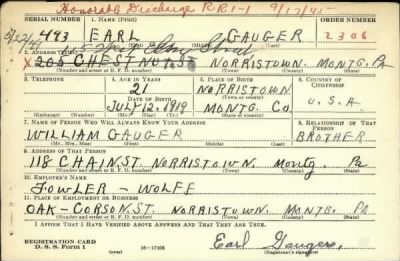 Honorable Discharge RR1-1 9/17/45
SERIAL NUMBER 1. NAME (Print) ORDER NUMBER
493 EARL GAUGER 2306
(First) (Middle) (Last)
2. ADDRESS (Print)
X 206 CHESTNUT ST NORRISTOWN MONTG. PA
(Number and street or R. F. D. number) (Town) (County) (State)
3. TELEPHONE 4. AGE IN YEARS 5. PLACE OF BIRTH 6. COUNTRY OF CITIZENSHIP
21 NORRISTOWN
DATE OF BIRTH (Town or county)
JULY 12. 1919 MONTG. CO. U.S.A
(Exchange) (Number) (Mo.) (Day) (Yr.) (State or country)
7. NAME OF PERSON WHO WILL ALWAYS KNOW YOUR ADDRESS 8. RELATIONSHIP OF THAT PERSON
WILLIAM GAUGER BROTHER
(Mr., Mrs., Miss) (First) (Middle) (Last)
9. ADDRESS OF THAT PERSON
118 CHAIN ST. NORRISTOWN. Montg. Pa
(Number and street or R. F. D. number) (Town) (County) (State)
10. EMPLOYER'S NAME
FOWLER - WOLFE
11. PLACE OF EMPLOYMENT OR BUSINESS
OAK - CORSON ST. NORRISTOWN. MONTG. PA
(Number and street or R. F. D. number) (Town) (County) (State)
I AFFIRM THAT I HAVE VERIFIED ABOVE ANSWERS AND THAT THEY ARE TRUE.
REGISTRATION CARD
D. S. S. Form 1 (over) 16-17105
Earl Gauger.
(Registrant's signature)